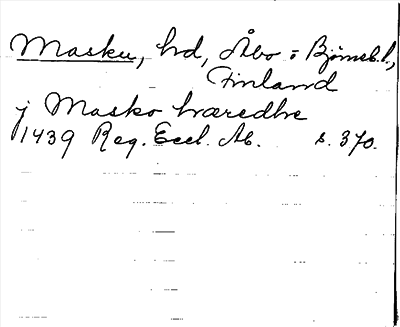 Masku, hd, Åbo = Björneb.l.,
Finland
j Masko hæredhe
1439 Reg. Eccl. Ab. s. 370.